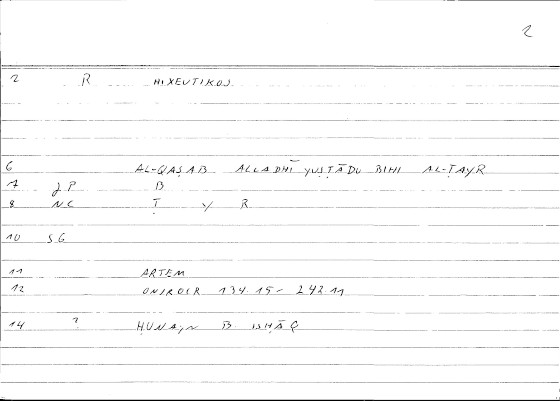 2
2 R HIXEUTIKOS
6 AL-QAṢAB ALLADHĪ YUṢṬĀDU BIHI AL-ṬAYR
7 JP B
8 NC Ṭ Y R
10 SG
11 ARTEM
12 ONIROCR 134.15 - 242.11
14 ? ḤUNAYN B ISḤĀQ